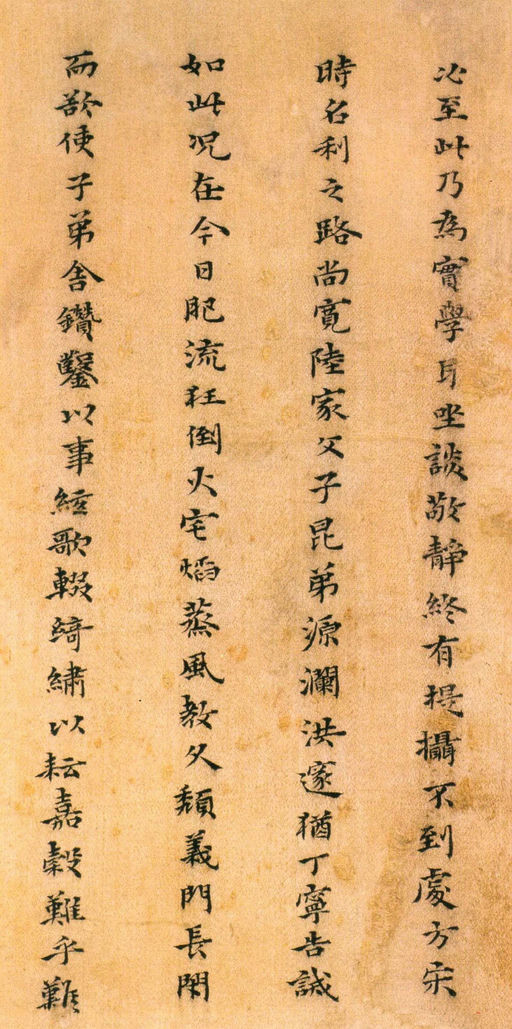 必至此乃為實學耳坐談敬靜終有提攝不到處方宋
時名利之路尚寬陸家父子昆弟源瀾洪邃猶丁寧告誡
如此况在今日肥流狂倒火宅焰蒸風教久頹義門長閉
而欲使子弟舍鑽鑿以事絃歌輟綺繡以耘嘉穀難乎難